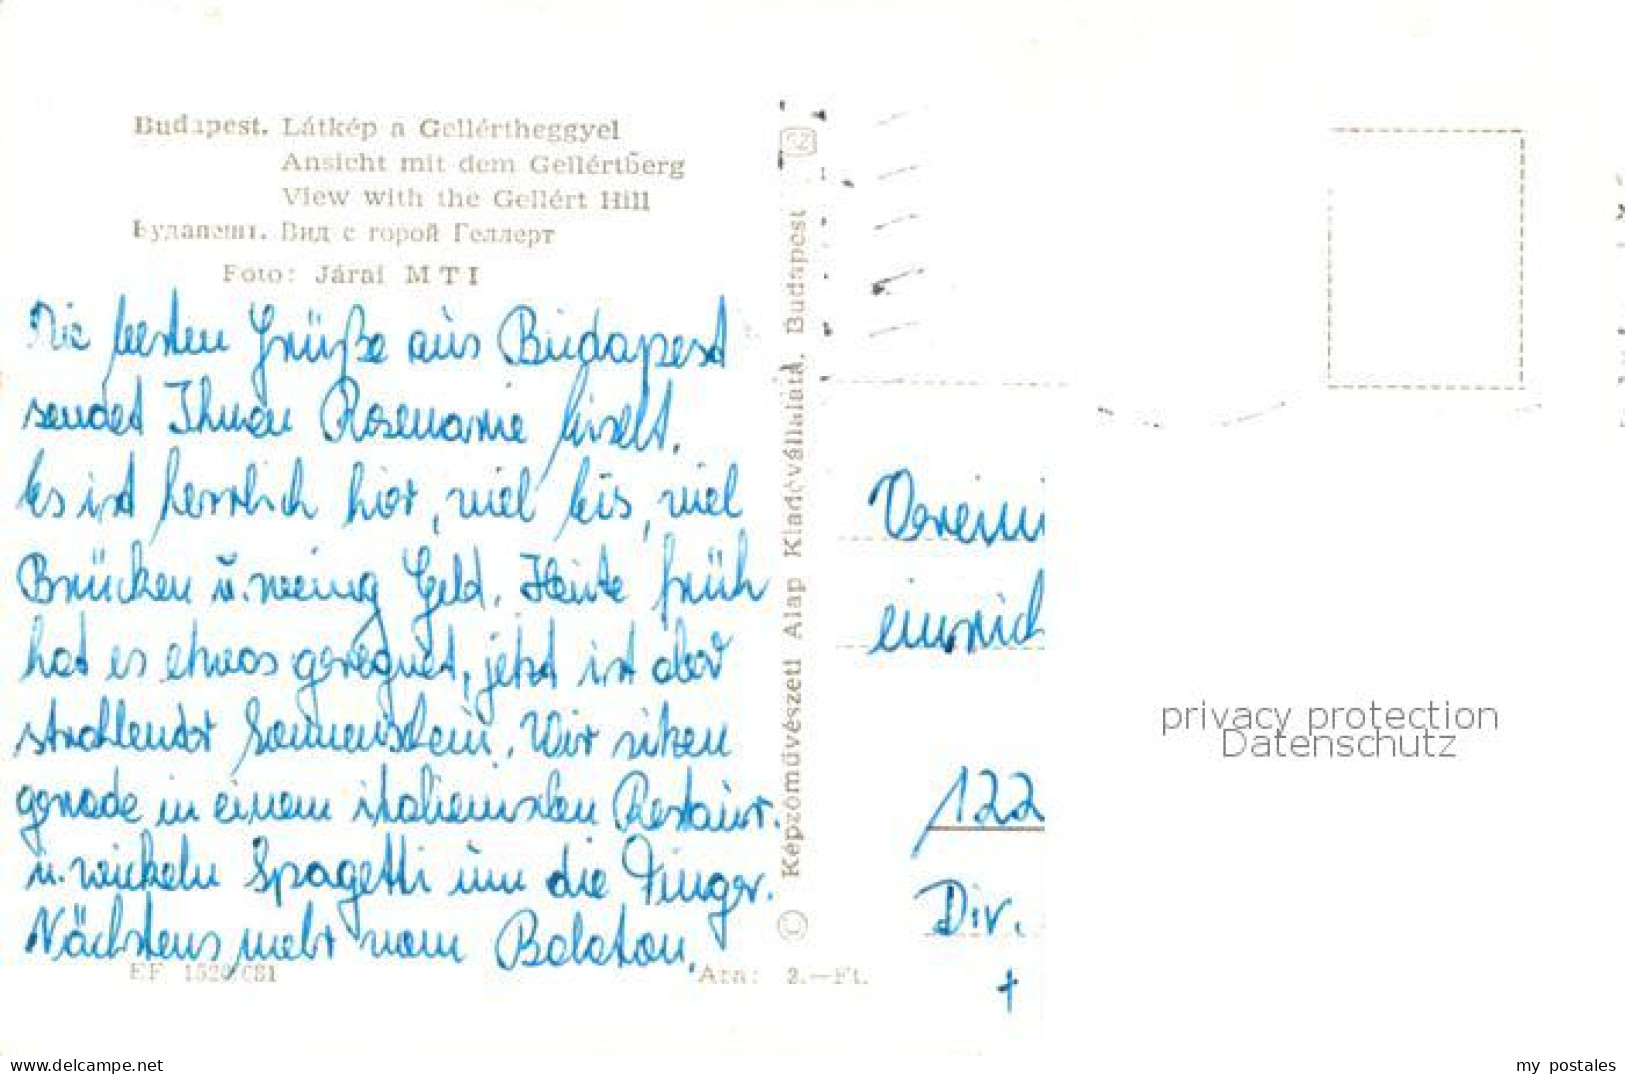 Budapest. Látkép a Gellértheggyel
Ansicht mit dem Gellértberg
View with the Gellért Hill
Будапешт. Вид с горой Геллерт
Foto: Járai MTI
Die besten Grüße aus Budapest
sendet Ihnen Rosemarie
Es ist herrlich hier, viel Eis, viel
Brücken u. wenig Geld. Heute früh
hat es etwas geregnet, jetzt ist aber
strahlender Sonnenschein. Wir sitzen
gerade in einem italienischen Restaur.
u. wickeln Spagetti um die Finger.
Nächstens mehr vom Balaton.
EF 1520/C81
Ára: 2.—Ft.
© Képzőművészeti Alap Kiadóvállalata, Budapest
Verein
einrich
122
Div.
privacy protection
Datenschutz
delcampe.net
my_postales